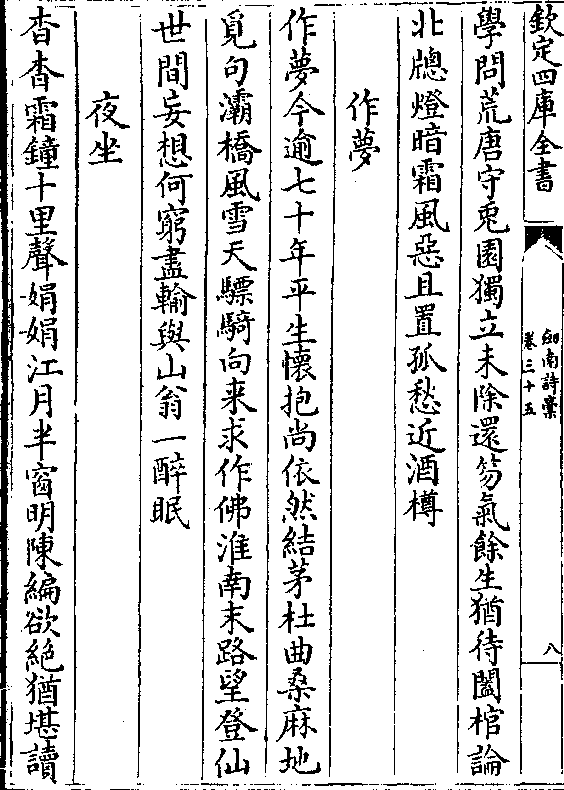 欽定四庫全書
劒南詩稾
卷三十五
八
學問荒唐守兎園獨立未除還笏氣餘生猶待闔棺論
北牕燈暗霜風惡且置孤愁近酒樽
作夢
作夢今逾七十年平生懷抱尚依然結茅杜曲桑麻地
覓句灞橋風雪天驃騎向来求作佛淮南末路望登仙
世間妄想何窮盡輸與山翁一醉眠
夜坐
杳杳霜鐘十里聲娟娟江月半窗明陳編欲絶猶堪讀